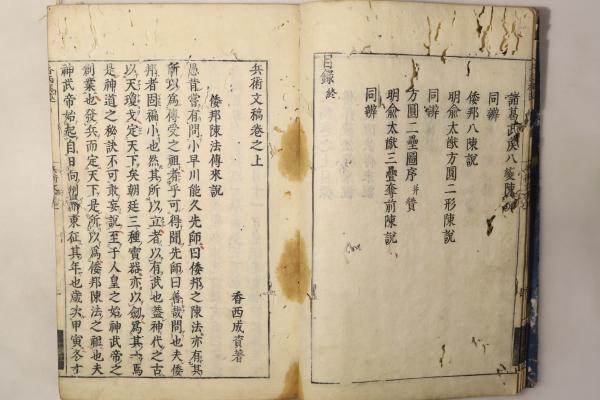 諸葛武侯八夋陳說
同辨
倭邦八陳說
明兪太猷方圓二形陳說
同辨
方圓二疊圖序并賛
明兪太猷三疊奪前陳說
同辨
目録終
兵術文稿卷之上
香西成資著
倭邦陳法傳來說
愚昔嘗有問小早川能久先師曰倭邦之陳法亦有其
所以為傳受之祖者乎可得聞先師曰善哉問也夫倭
邦者固褊小也然其所以立者以有武也蓋神代之古
以天瓊戈定天下矣朝廷三種寶器亦以劔為其一焉
是神道之秘訣不可敢妄說至于人皇之始神武帝之
創業也發兵而定天下是所以為倭邦陳法之祖也夫
神武帝始起自日向州而東征其年也歲次甲寅冬十